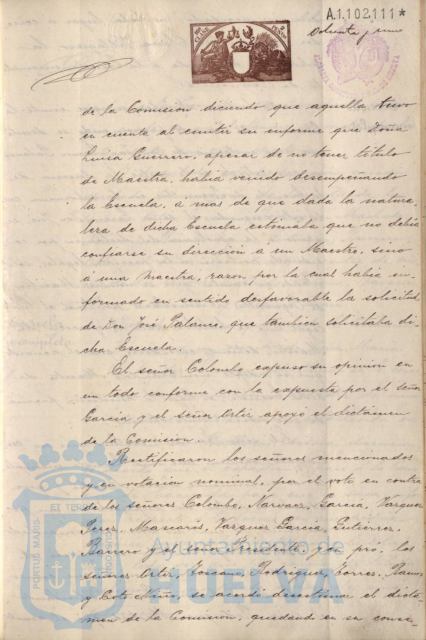 A.1.102,111*
ochenta y uno
de la Comision diciendo que aquella tuvo
en cuenta al emitir su informe que Doña
Luisa Guerrero, apesar de no tener titulo
de Maestra, habia venido desempeñando
la Escuela, á mas de que dada la natura
leza de dicha Escuela estimaba que no debia
confiarse su direccion á un Maestro, sino
á una Maestra, razon por la cual habia in
formado en sentido desfavorable la solicitud
de Don José Palanco, que tambien solicitaba di
cha Escuela.
El señor Colombo expuso su opinión en
un todo conforme con la expuesta por el señor
Garcia y el señor Ortiz apoyó el dictámen
de la Comision.
Rectificaron los señores mencionados
y en votacion nominal, por el voto en contra
de los señores Colombo, Narvaez, Garcia, Vazquez
Perez, Mascarós, Vazquez Garcia, Gutierrez,
Barrero y el señor Presidente, y en pró, los
señores Ortiz, Toscano, Rodriguez, Torres,
y Coto Niño, se acordó desestimar el dictá
men de la Comisión, quedando en su conse
PORTUS MARIS
ET TERRAE
Ayuntamiento de
HUELVA